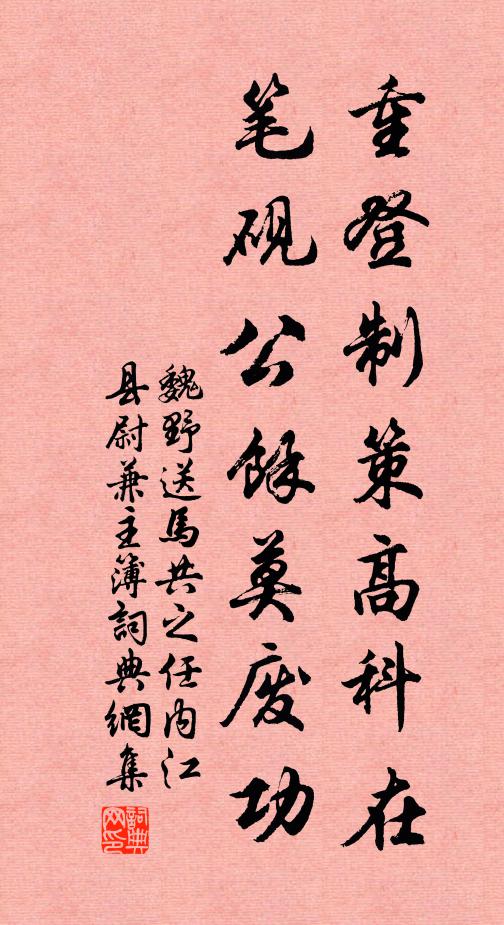 重登制策高科在
笔砚公馀莫废功
魏野送馬共之任内江
县尉兼主簿詞典網集
詞典
网印